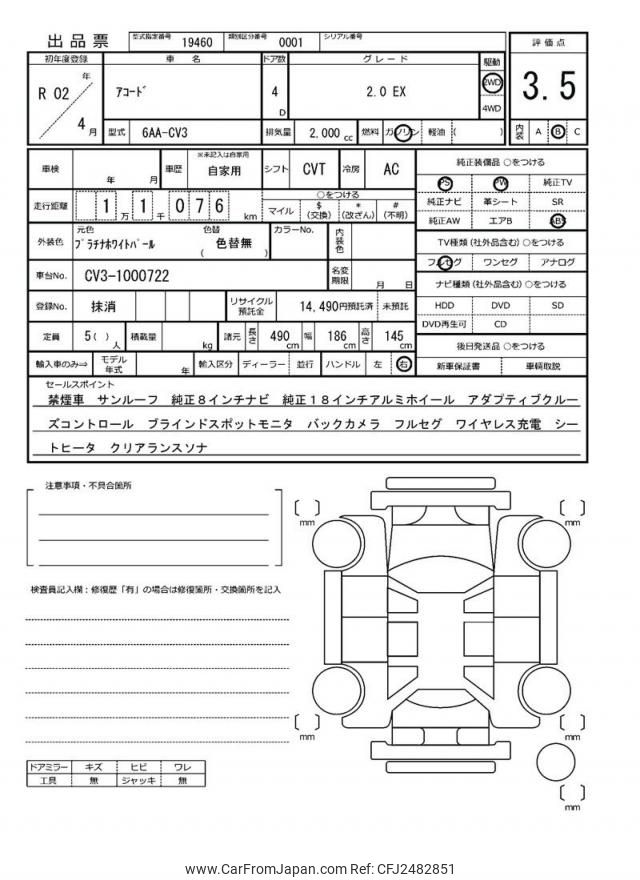 出品票
型式指定番号 19460 類別区分番号 0001 シリアル番号
初年度登録 車名 ドア数 グレード 駆動 評価点
R 02 年 4 月 アコード 4 D 2.0 EX 2WD 4WD 3.5
型式 6AA-CV3 排気量 2,000 cc 燃料 ガソリン 軽油 ( ) 内装 A B C
車検 年 月 車歴 ※未記入は自家用 自家用 シフト CVT 冷房 AC 純正装備品 ○をつける
PS PW 純正TV
走行距離 1 万 1 千 0 7 6 km ○をつける
マイル $ (交換) * (改ざん) # (不明)
純正ナビ 革シート SR
純正AW エアB ABS
外装色 元色 プラチナホワイトパール 色替 ( 色替無 ) カラーNo. 内装色
TV種類(社外品含む)○をつける
フルセグ ワンセグ アナログ
車台No. CV3-1000722 名変期限 月 日
ナビ種類(社外品含む)○をつける
登録No. 抹消 リサイクル預託金 14,490円預託済 未預託
HDD DVD SD
DVD再生可 CD
定員 5( )人 積載量 kg 諸元 長さ 490 cm 幅 186 cm 高さ 145 cm
後日発送品 ○をつける
輸入車のみ⇒ モデル年式 年 輸入区分 ディーラー 並行 ハンドル 左 右
新車保証書 車輌取説
セールスポイント
禁煙車 サンルーフ 純正8インチナビ 純正18インチアルミホイール アダプティブクルー
ズコントロール ブラインドスポットモニタ バックカメラ フルセグ ワイヤレス充電 シー
トヒータ クリアランスソナ
注意事項・不具合箇所
mm mm
検査員記入欄:修復歴「有」の場合は修復箇所・交換箇所を記入
mm mm
ドアミラー キズ ヒビ ワレ
工具 無 ジャッキ 無
mm
www.CarFromJapan.com Ref: CFJ2482851